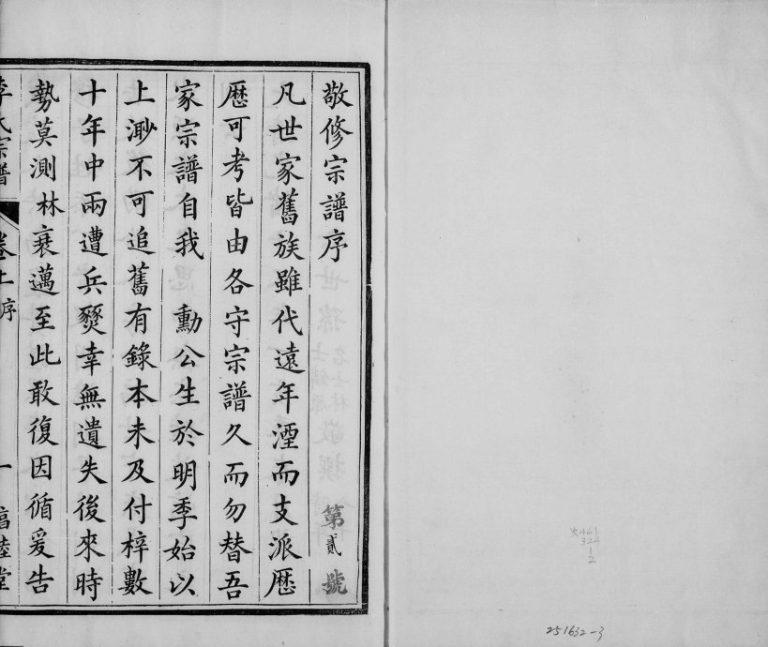 敬修宗譜序 第貳號
凡世家舊族雖代遠年湮而支派歷
歷可考皆由各守宗譜久而勿替吾
家宗譜自我 勳公生於明季始以
上渺不可追舊有錄本未及付梓數
十年中兩遭兵燹幸無遺失後來時
勢莫測林衰邁至此敢復因循爰告
李氏宗譜 卷上序 一 福蔭堂
251632-3